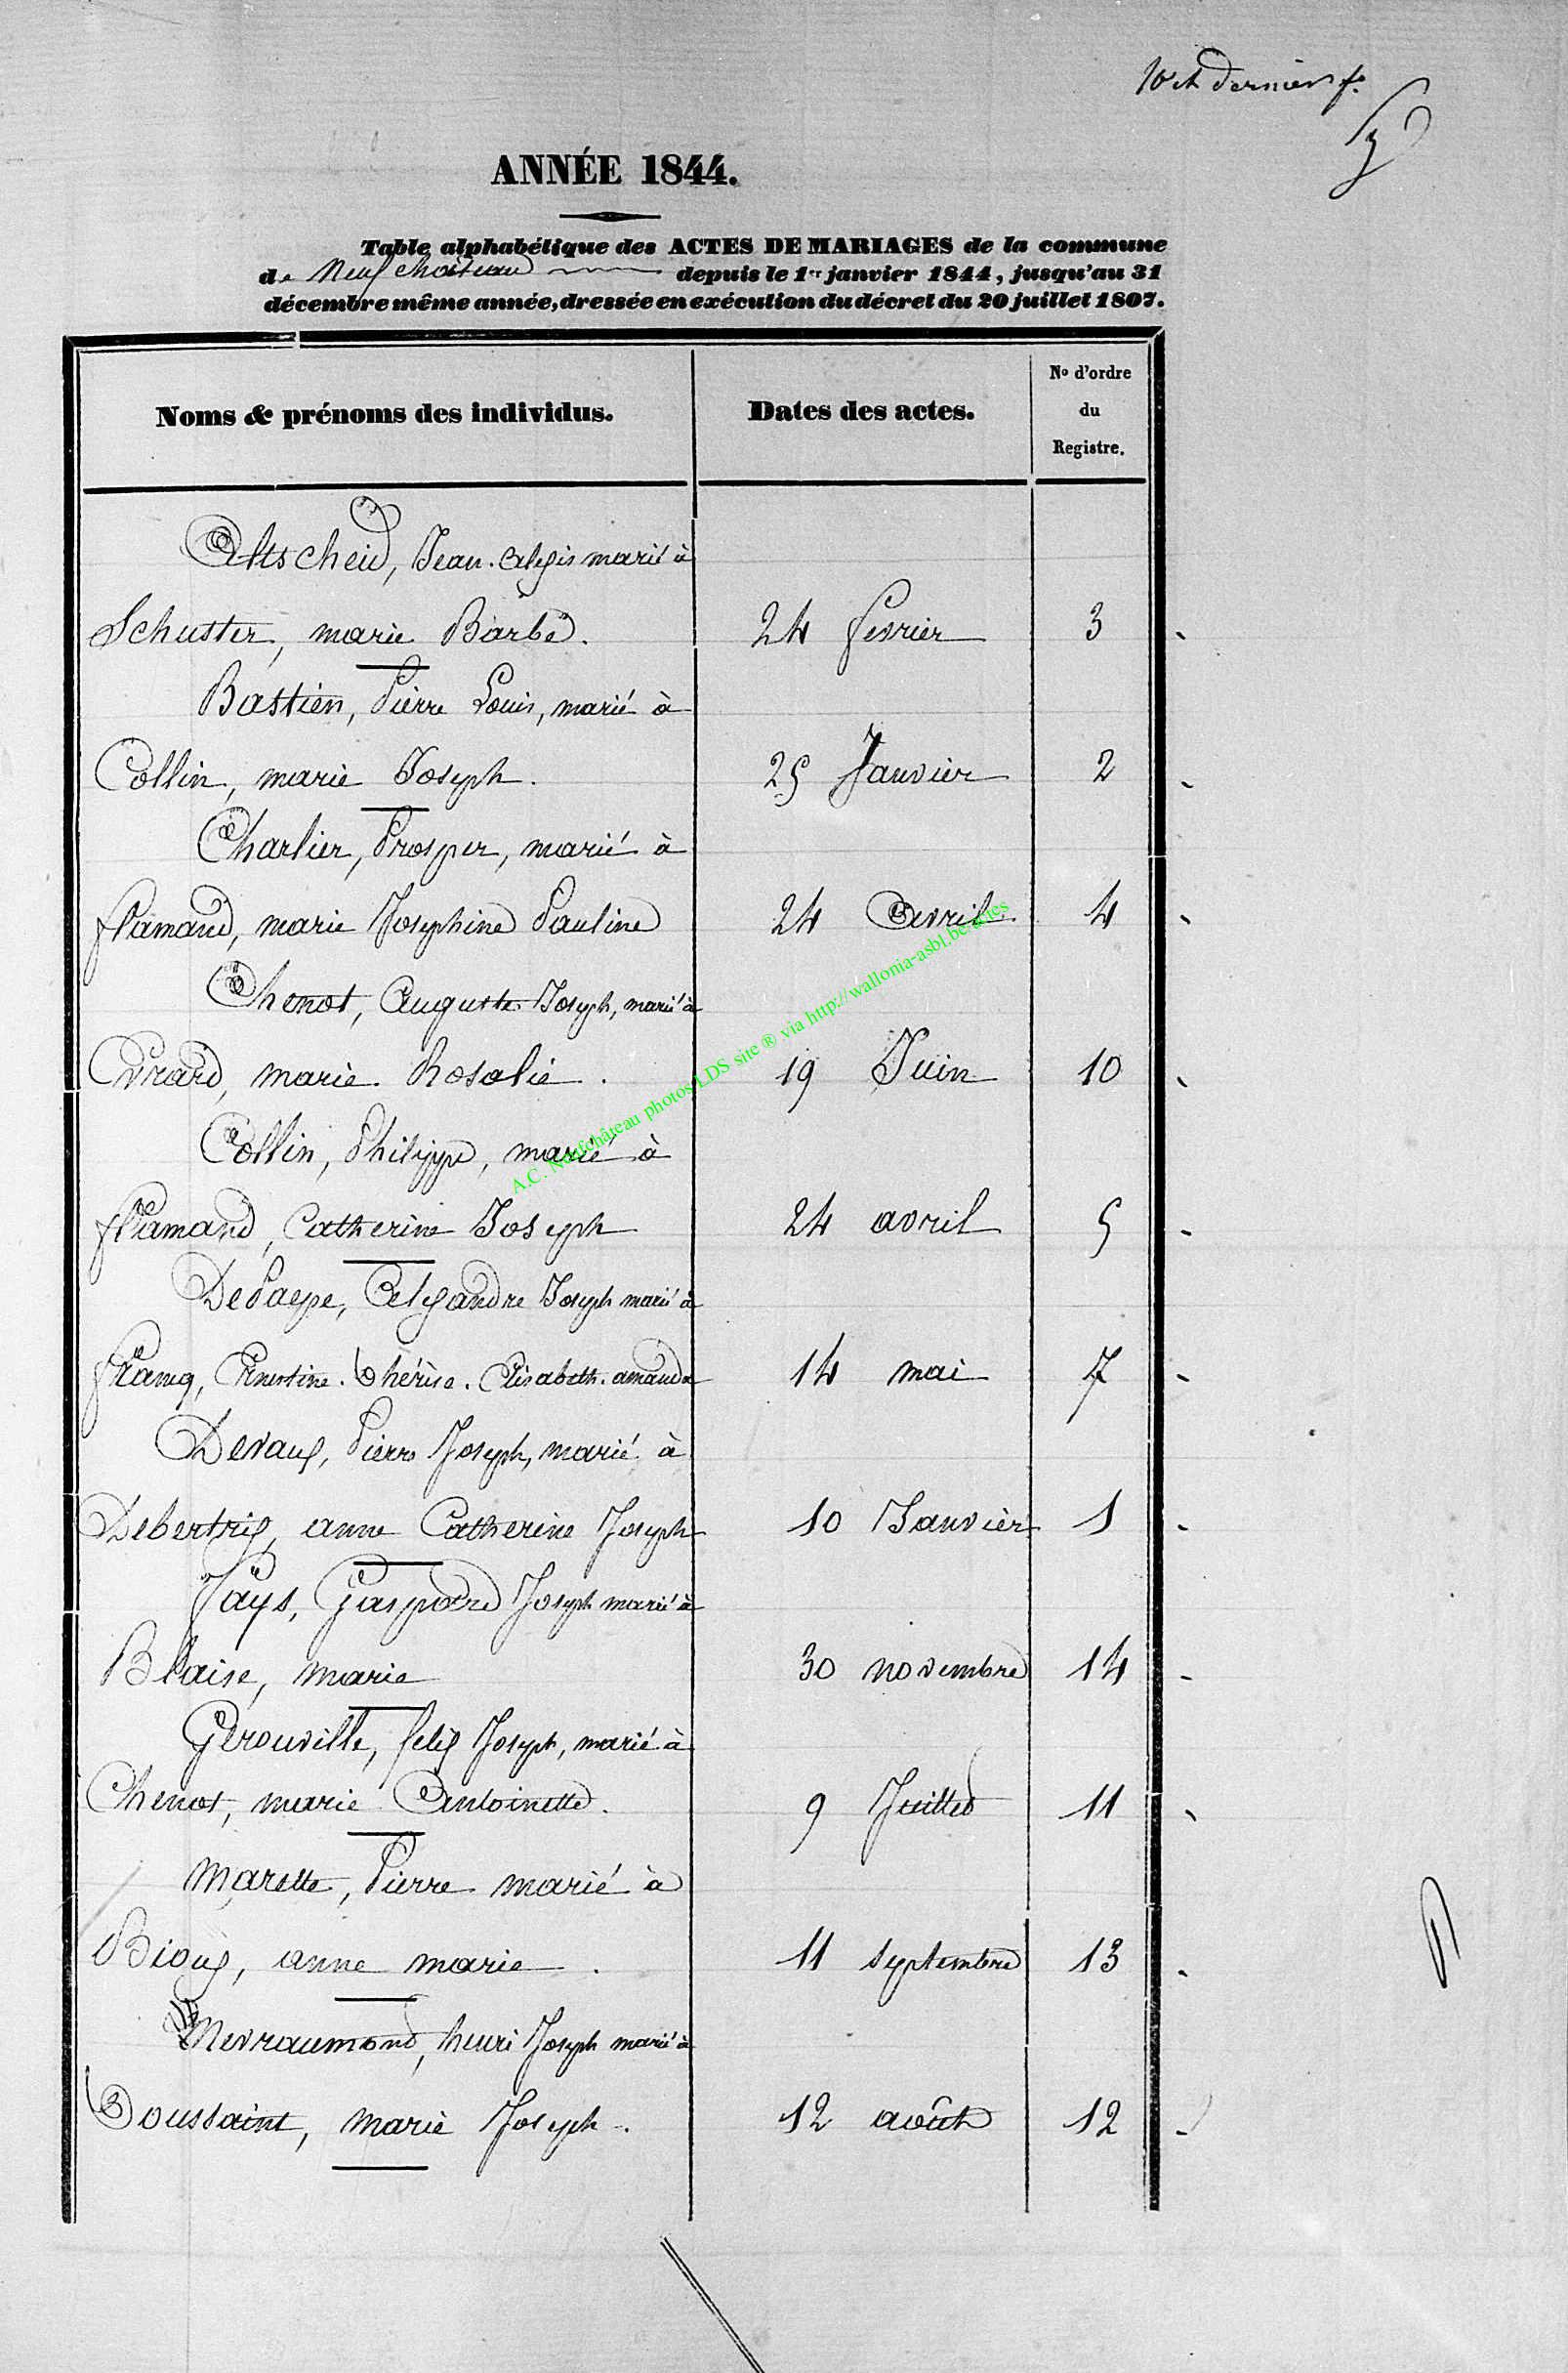 10 et dernier f.
ANNÉE 1844.
Table alphabétique des ACTES DE MARIAGES de la commune
de Neufchateau depuis le 1er janvier 1844, jusqu'au 31
décembre même année, dressée en exécution du décret du 20 juillet 1807.
Noms & prénoms des individus. Dates des actes. No d'ordre du Registre.
Altscheid, Jean. Alexis marié à
Schuster, marie Barbe. 24 fevrier 3
Bastien, Pierre Louis, marié à
Collin, marie Joseph. 25 Janvier 2
Charlier, Prosper, marié à
flamand, marie Josephine Pauline 24 Avril 4
Chenot, Auguste Joseph, marié à
Evrard, marie Rosalie. 19 Juin 10
Collin, Philippe, marié à
flamand, Catherine Joseph 24 avril 5
DePaepe, Alexandre Joseph marié à
francq, Ernestine. Thérèse. Elisabeth. amanda 14 mai 7
Devaux, Pierre Joseph, marié à
Debertrix, anne Catherine Joseph 10 Janvier 1
Fays, Gaspard Joseph marié à
Blaise, marie 30 novembre 14
Gerouville, felix Joseph, marié à
Chenot, marie Antoinette. 9 Juillet 11
Marette, Pierre marié à
Bioux, anne marie. 11 septembre 13
Mevraumond, henri Joseph marié à
Toussaint, marie Joseph. 12 août 12
A.C. Neufchâteau photos LDS site ® via http://wallonia-asbl.be/actes